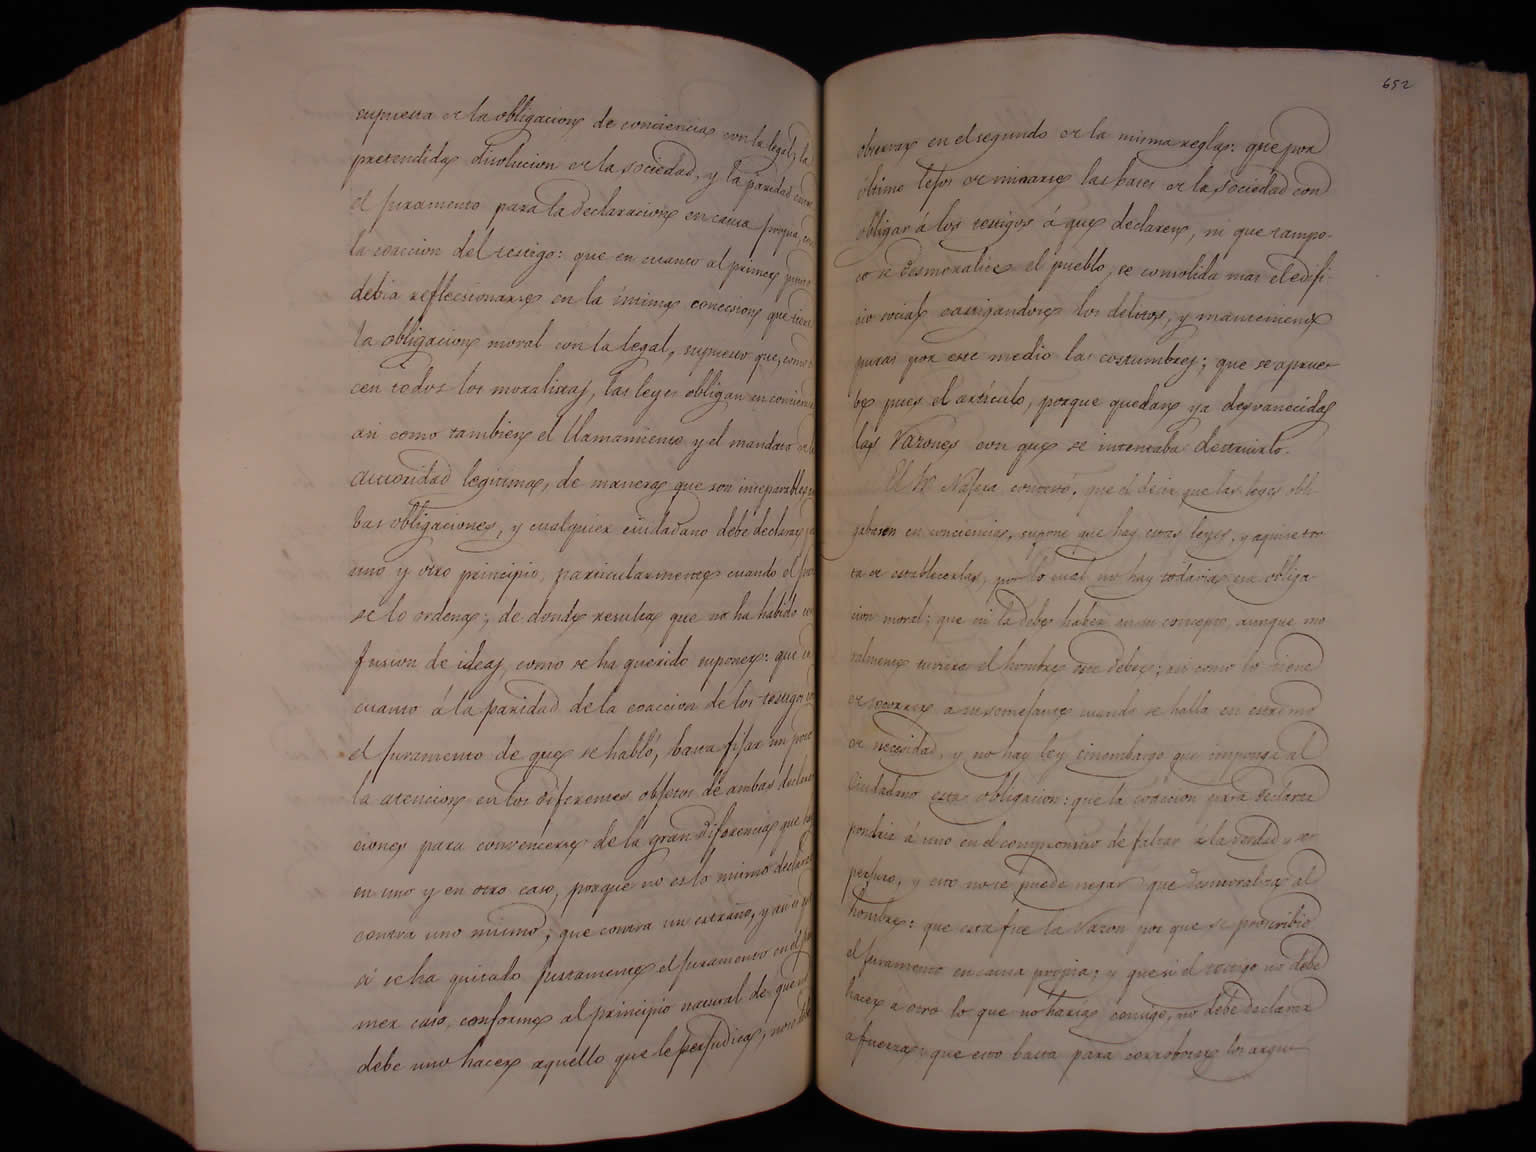 supuesta de la obligacion de conciencia con la legal; la
pretendida disolucion de la sociedad, y la paridad entre
el juramento para la declaracion en causa propia, con
la coaccion del testigo: que en cuanto al primer punto
debia reflecsionarse en la íntima conecsion que tiene
la obligacion moral con la legal, supuesto que, como di
cen todos los moralistas, las leyes obligan en conciencia
asi como tambien el llamamiento y el mandato de la
autoridad legitima, de manera que son inseparables
tas obligaciones, y cualquier ciudadano debe declarar
uno y otro principio, particularmente cuando el juez
se lo ordena; de donde resulta que no ha habido con
fusion de ideas, como se ha querido suponer: que en
cuanto á la paridad de la coaccion de los testigos con
el juramento de que se habló, basta fijar un poco
la atencion en los diferentes objetos de ambas declara
ciones para convencerse de la gran diferencia que hay
en uno y en otro caso, porque no es lo mismo declarar
contra uno mismo, que contra un estraño, y asi es que
á se ha quitado justamente el juramento en el pri
mer caso, conforme al principio natural de que no
debe uno hacer aquello que le perjudica; no se debe
652
observar en el segundo de la misma regla: que por
último lejos de minarse las bases de la sociedad con
obligar á los testigos á que declaren, ni que tampo-
co se desmoralice el pueblo, se consolida mas el edifi-
cio social castigandose los delitos, y manteniense
puras por este medio las costumbres; que se aprue-
be pues el artículo, porque quedan ya desvanecidas
las razones con que se intentaba destruirlo.
El Sr. Najera contestó, que el decir que las leyes obli
gaban en conciencia, supone que hay esas leyes, y aqui se tra
ta de establecerlas, por lo cual no hay todavia esa obliga-
cion moral; que ni la debe haber en su concepto, aunque mo
ralmente tuviera el hombre ese deber; asi como lo tiene
de socorrer a su semejante cuando se halla en estrema
de necesidad, y no hay ley sinembargo que imponga al
Ciudadano esta obligacion: que la coaccion para declarar
pondria á uno en el compromiso de faltar á la verdad y ser
perjuro, y esto no se puede negar que desmoraliza al
hombre: que esta fue la razon por que se proscribió
el juramento en causa propia; y que si el testigo no debe
hacer a otro lo que no haria consigo, no debe declarar
a fuerza: que esto basta para corroborar los argu-